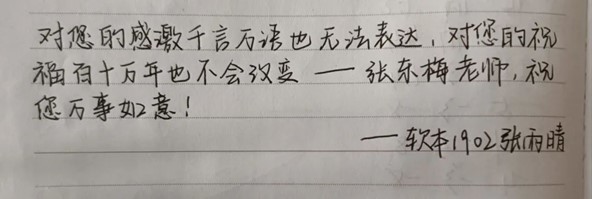 对您的感激千言万语也无法表达，对您的祝
福百十万年也不会改变——张东梅老师，祝
您万事如意！
——软本1902张雨晴